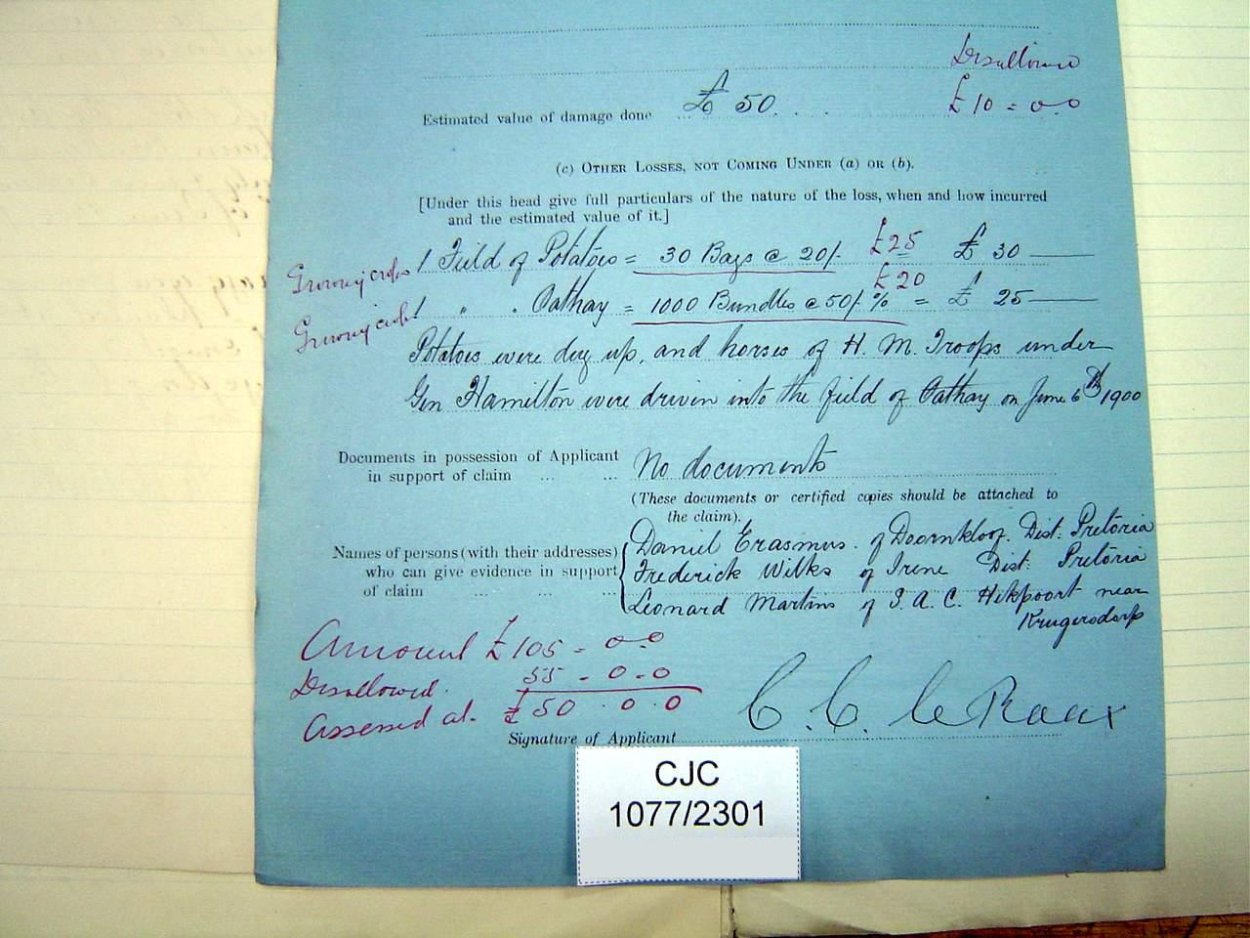 Disallowed
Estimated value of damage done £ 50. . . £10 = 0-0
(c) OTHER LOSSES, NOT COMING UNDER (a) OR (b).
[Under this head give full particulars of the nature of the loss, when and how incurred
and the estimated value of it.]
Growing crops 1 Field of Potatoes = 30 Bags @ 20/- £25 £ 30 —
Growing crops 1 " . Oathay = 1000 Bundles @ 50/- % £20 = £ 25 —
Potatoes were dug up, and horses of H. M. Troops under
Gen Hamilton were driven into the field of Oathay on June 6th 1900
Documents in possession of Applicant
in support of claim ... ... No documents
(These documents or certified copies should be attached to
the claim).
Names of persons (with their addresses)
who can give evidence in support
of claim ... ... ...
Daniel Erasmus. of Doornkloof. Dist. Pretoria
Frederick Wilks of Irene Dist: Pretoria
Leonard Martins of S. A. C. Hekpoort near
Krugersdorp
Amount £105 - 0-0
Disallowed. 55 - 0 - 0
Assessed at. £50 . 0 . 0
Signature of Applicant C. C. le Roux
CJC
1077/2301